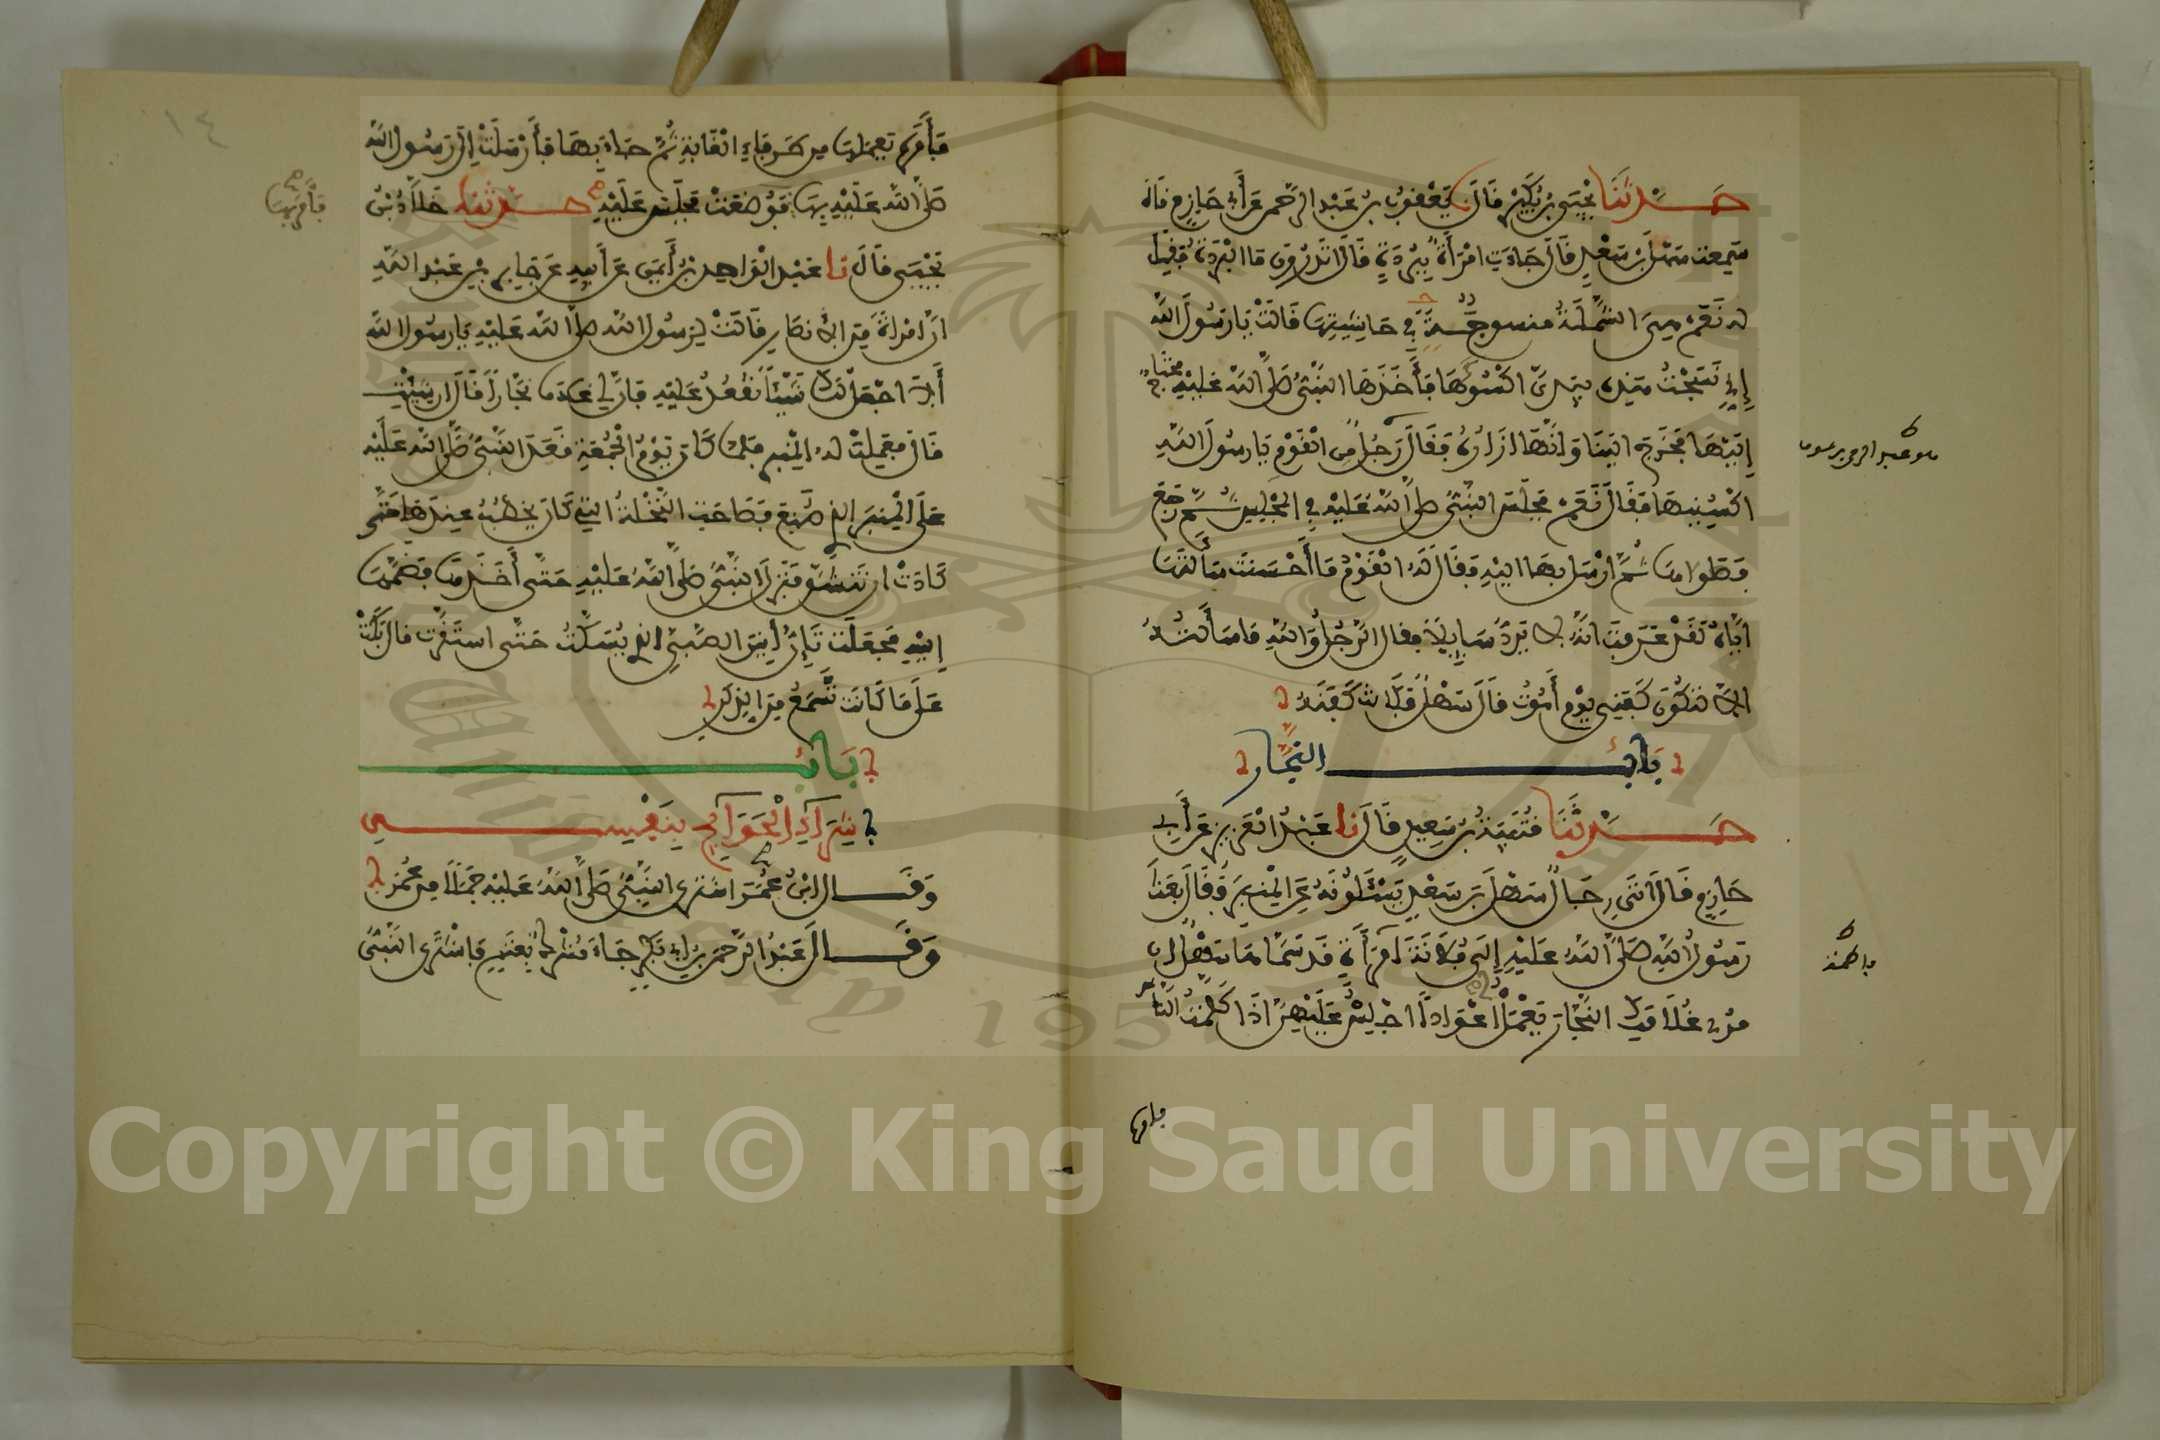 حدثنا يحيى بن بكير قال نا يعقوب بن عبد الرحمن عن أبي حازم قال
سمعت سهل بن سعد قال جاءت امرأة ببردة قال اتدرون ما البردة فقيل
له نعم هي الشملة منسوجة في حاشيتها قالت يا رسول الله
إني نسجت هذه بيدي اكسوكها فأخذها النبي صلى الله عليه محتاجا
إليها فخرج الينا وانها ازاره فقال رجل من القوم يا رسول الله
اكسنيها فقال نعم فجلس النبي صلى الله عليه في المجلس ثم رجع
فطواها ثم ارسل بها اليه فقال له القوم ما أحسنت سألتها
اياه لقد عرفت انه لا يرد سايلا فقال الرجل والله ما سألته
الا لتكون كفني يوم أموت قال سهل فكانت كفنه
باب النجار
حدثنا قتيبة بن سعيد قال نا عبد العزيز عن أبي
حازم قال اتى رجال سهل بن سعد يسئلونه عن المنبر فقال بعث
رسول الله صلى الله عليه إلى فلانة امرأة قد سماها سهل ان
مري غلامك النجار يعمل لي اعوادا اجلس عليهن اذا كلمت الناس
فامرته
فأمرته يعملها من طرفاء الغابة ثم جاء بها فأرسلت إلى رسول الله
صلى الله عليه بها فوضعت فجلس عليه حدثنا خلاد بن
يحيى قال نا عبد الواحد بن أيمن عن أبيه عن جابر بن عبد الله
ان امرأة من الانصار قالت لرسول الله صلى الله عليه يا رسول الله
ألا اجعل لك شيئا تقعد عليه فان لي غلاما نجارا قال ان شئت
قال فعملت له المنبر فلما كان يوم الجمعة قعد النبي صلى الله عليه
على المنبر الذي صنع فصاحت النخلة التي كان يخطب عندها حتى
كادت ان تنشق فنزل النبي صلى الله عليه حتى أخذها فضمها
إليه فجعلت تئن أنين الصبي الذي يسكت حتى استقرت قال بكت
على ما كانت تسمع من الذكر
باب
شراء الحوايج بنفسه
وقال ابن عمر اشترى النبي صلى الله عليه جملا من عمر
وقال عبد الرحمن بن أبي بكر جاء مشرك بغنم فاشترى النبي